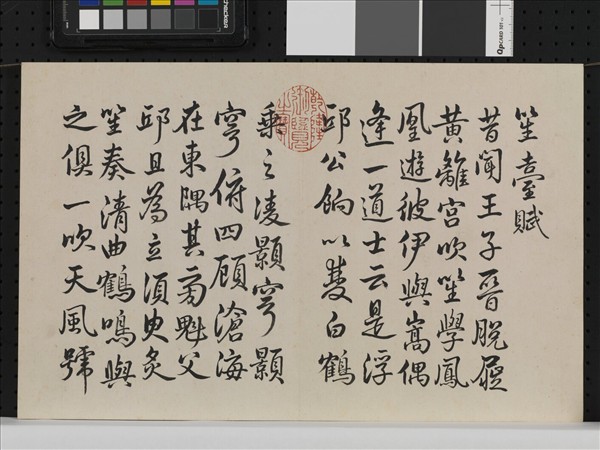 笙臺賦
昔聞王子晉脫屣
黃離宮吹笙學鳳
凰遊彼伊與嵩偶
逢一道士云是浮
邱公餉以雙白鶴
乘之淩顥穹顥
穹俯四顧滄海
在東隅其旁魁父
邱且為立須臾炙
笙奏清曲鶴鳴與
之俱一吹天風號
乾隆御覽之寶